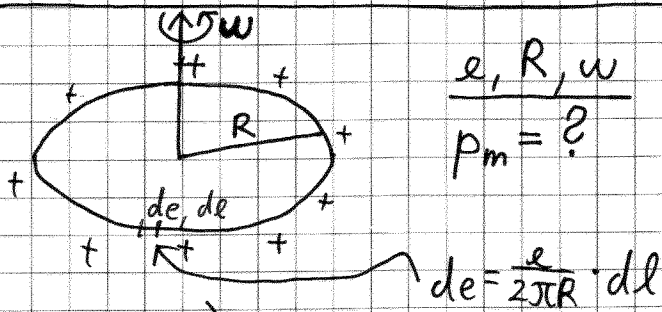 ω
R
de, dl
e, R, ω
pₘ = ?
de = e/2πR · dl